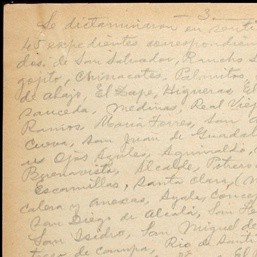 — 3. —
Se dictaminaron en sentido
45 expedientes correspondien
dos, de San Salvador, Rancho S
gojito, Chinacates, Palmitos,
de Abajo, El Zape, Higueras El
Sauceda, Medinas, Real Viej
Ramos, María Ferres, San A
Cueva, San Juan de Guadal
us Ojos Azules, Aquinaldo, C
Buenavista, Alcalde, Potrero
Escamillas, Santa Clara, (
calera y Anexas, Ayala, Conce
San Diego de Alcalá, San Fe
San Isidro, San Miguel de
toso de campa, Río de Santi